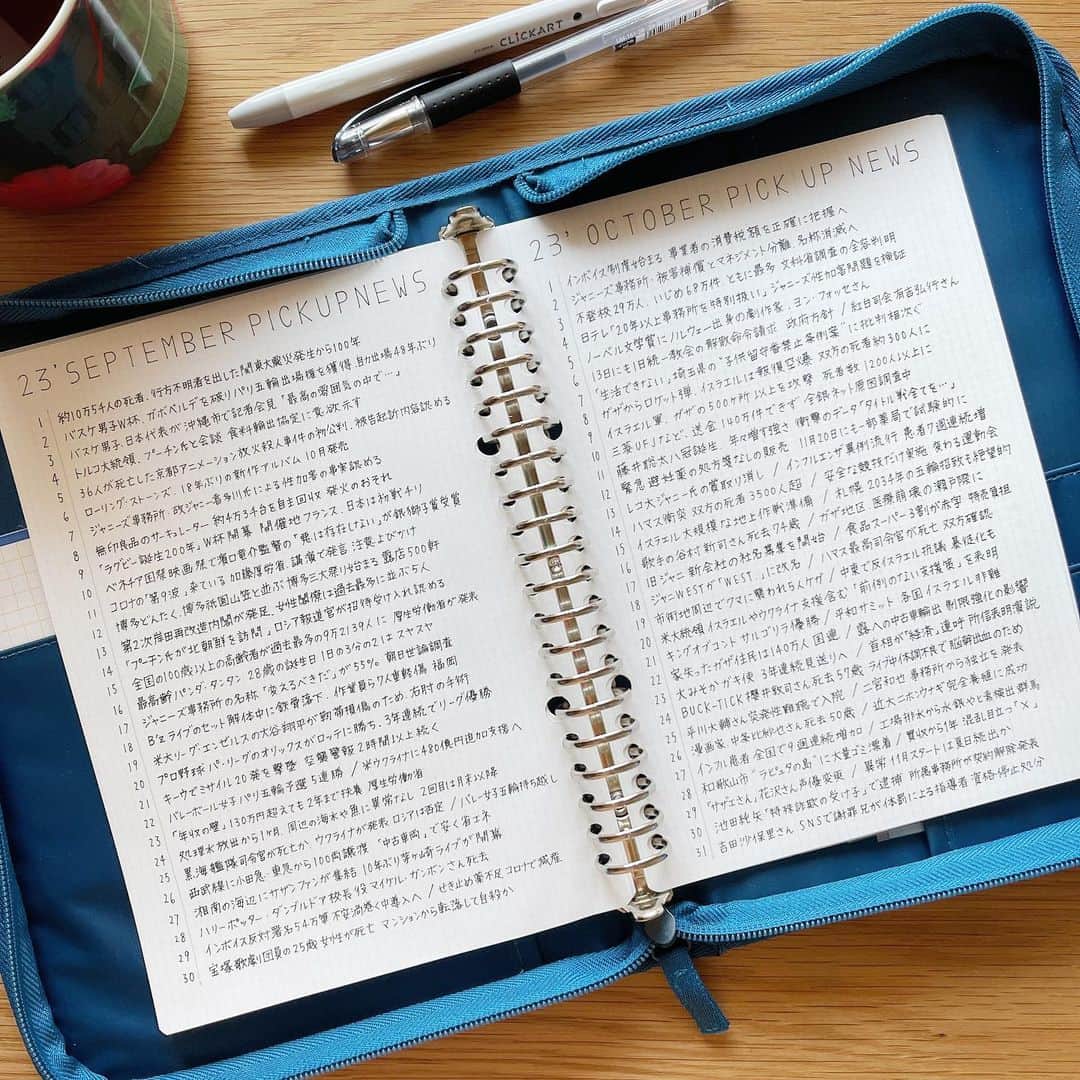 ZEBRA CLiCKART
23' SEPTEMBER PICK UP NEWS
1 約10万54人の死者、行方不明者を出した関東大震災発生から100年
2 バスケ男子W杯、カボベルデを破りパリ五輪出場権を獲得、自力出場48年ぶり
3 バスケ男子、日本代表が沖縄市で記者会見「最高の雰囲気の中で…」
4 トルコ大統領、プーチン氏と会談 食料輸出協定に意欲示す
5 36人が死亡した京都アニメーション放火殺人事件の初公判、被告起訴内容認める
6 ローリング・ストーンズ、18年ぶりの新作アルバム 10月発売
7 ジャニーズ事務所、故ジャニー喜多川氏による性加害の事実認める
8 無印良品のサーキュレーター 約4万3千台を自主回収 発火のおそれ
9 「ラグビー誕生200年」W杯開幕 開催地フランス、日本は初戦チリ
10 ベネチア国際映画祭で濱口竜介監督の「悪は存在しない」が銀獅子賞受賞
11 コロナの「第9波」来ている 加藤厚労省、講演で発言 注意よびかけ
12 博多どんたく、博多祇園山笠と並ぶ博多三大祭り始まる 露店500軒
13 第2次岸田再改造内閣が発足、女性閣僚は過去最多に並ぶ5人
14 「プーチン氏が北朝鮮を訪問」ロシア報道官が招待受け入れ認める
15 全国の100歳以上の高齢者が過去最多の9万2139人に 厚生労働省が発表
16 最高齢パンダ・タンタン 28歳の誕生日 1日の3分の2はスヤスヤ
17 ジャニーズ事務所の名称「変えるべきだ」が55% 朝日世論調査
18 B'zライブのセット解体中に鉄骨落下、作業員ら7人重軽傷 福岡
19 米大リーグ・エンゼルスの大谷翔平が靭帯損傷のため、右肘の手術
20 プロ野球パ・リーグのオリックスがロッテに勝ち、3年連続でリーグ優勝
21 キーウでミサイル20発を撃墜 空襲警報2時間以上続く
22 バレーボール女子パリ五輪予選5連勝 / 米ウクライナに480億円追加支援へ
23 「年収の壁」130万円超えても2年まで扶養 厚生労働省
24 処理水放出から1ヶ月、周辺の海水や魚に異常なし 2回目は月末以降
25 黒海艦隊司令官が死亡か ウクライナが発表 ロシアは否定 / バレー女子五輪持ち越し
26 西武線に小田急、東急から100両譲渡 「中古車両」で安く省エネ
27 湘南の海辺にサザンファンが集結 10年ぶり茅ヶ崎ライブが開幕
28 ハリーポッター・ダンブルドア校長役 マイケル・ガンボンさん死去
29 インボイス反対署名54万筆 不安渦巻く中導入へ / せき止め薬不足 コロナで減産
30 宝塚歌劇団員の25歳女性が死亡 マンションから転落して自殺か
23' OCTOBER PICK UP NEWS
1 インボイス制度始まる 事業者の消費税額を正確に把握へ
2 ジャニーズ事務所、被害補償とマネジメント分離、名称消滅へ
3 不登校29万人、いじめ68万件 ともに最多 文科省調査の全容判明
4 日テレ「20年以上事務所を特別扱い」ジャニーズ性加害問題を検証
5 ノーベル文学賞にノルウェー出身の劇作家、ヨン・フォッセさん
6 13日にも旧統一教会の解散命令請求 政府方針 / 紅白司会有吉弘行さん
7 「生活できない」埼玉県の"子供留守番禁止条例案"に批判相次ぐ
8 ガザからロケット弾、イスラエルは報復空爆 双方の死者約300人に
9 イスラエル軍、ガザの500ヶ所以上を攻撃 死者数1200人以上に
10 三菱UFJなど、送金140万件できず 全銀ネット原因調査中
11 藤井聡太八冠誕生 年々増す強さ 衝撃のデータ「タイトル戦全てを…」
12 緊急避妊薬の処方箋なしの販売 11月20日にも一部薬局で試験的に
13 レコ大ジャニー氏の賞取り消し / インフルエンザ異例流行 患者7週連続増
14 ハマス衝突 双方の死者3500人超 / 安全な競技だけ実施 変わる運動会
15 イスラエル大規模な地上作戦準備 / 札幌 2034年の五輪招致も絶望的
16 歌手の谷村新司さん死去 74歳 / ガザ地区 医療崩壊の瀬戸際に
17 旧ジャニ新会社の社名募集を開始 / 食品スーパー3割が赤字 特売負担
18 ジャニWESTが「WEST.」に改名 / ハマス最高司令官が死亡 双方確認
19 市街地周辺でクマに襲われ5人ケガ / 中東で反イスラエル抗議 暴徒化も
20 米大統領「イスラエルやウクライナ支援含む"前例のない支援策"」を表明
21 キングオブコント サルゴリラ優勝 / 平和サミット 各国イスラエル非難
22 家失ったガザ住民は140万人 国連 / 露への中古車輸出 制限強化の影響
23 大みそかガキ使 3年連続見送りへ / 首相が「経済」連呼 所信表明演説
24 BUCK-TICK 櫻井敦司さん死去57歳 ライブ中体調不良で脳幹出血のため
25 平川大輔さん突発性難聴で入院 / 二宮和也 事務所から独立を発表
26 漫画家 中条比紗也さん死去50歳 / 近大ニホンウナギ完全養殖に成功
27 インフル患者 全国で9週連続増加 / 工場排水から水銀やヒ素検出 群馬
28 和歌山市「ラピュタの島」に大量ゴミ漂着 / 買収から1年 混乱目立つ「X」
29 「サザエさん」花沢さん声優変更 / 異常11月スタートは夏日続出か
30 池田純矢「特殊詐欺の受け子」で逮捕 所属事務所が契約解除発表
31 吉田沙保里さんSNSで謝罪 兄が体罰による指導者資格停止処分